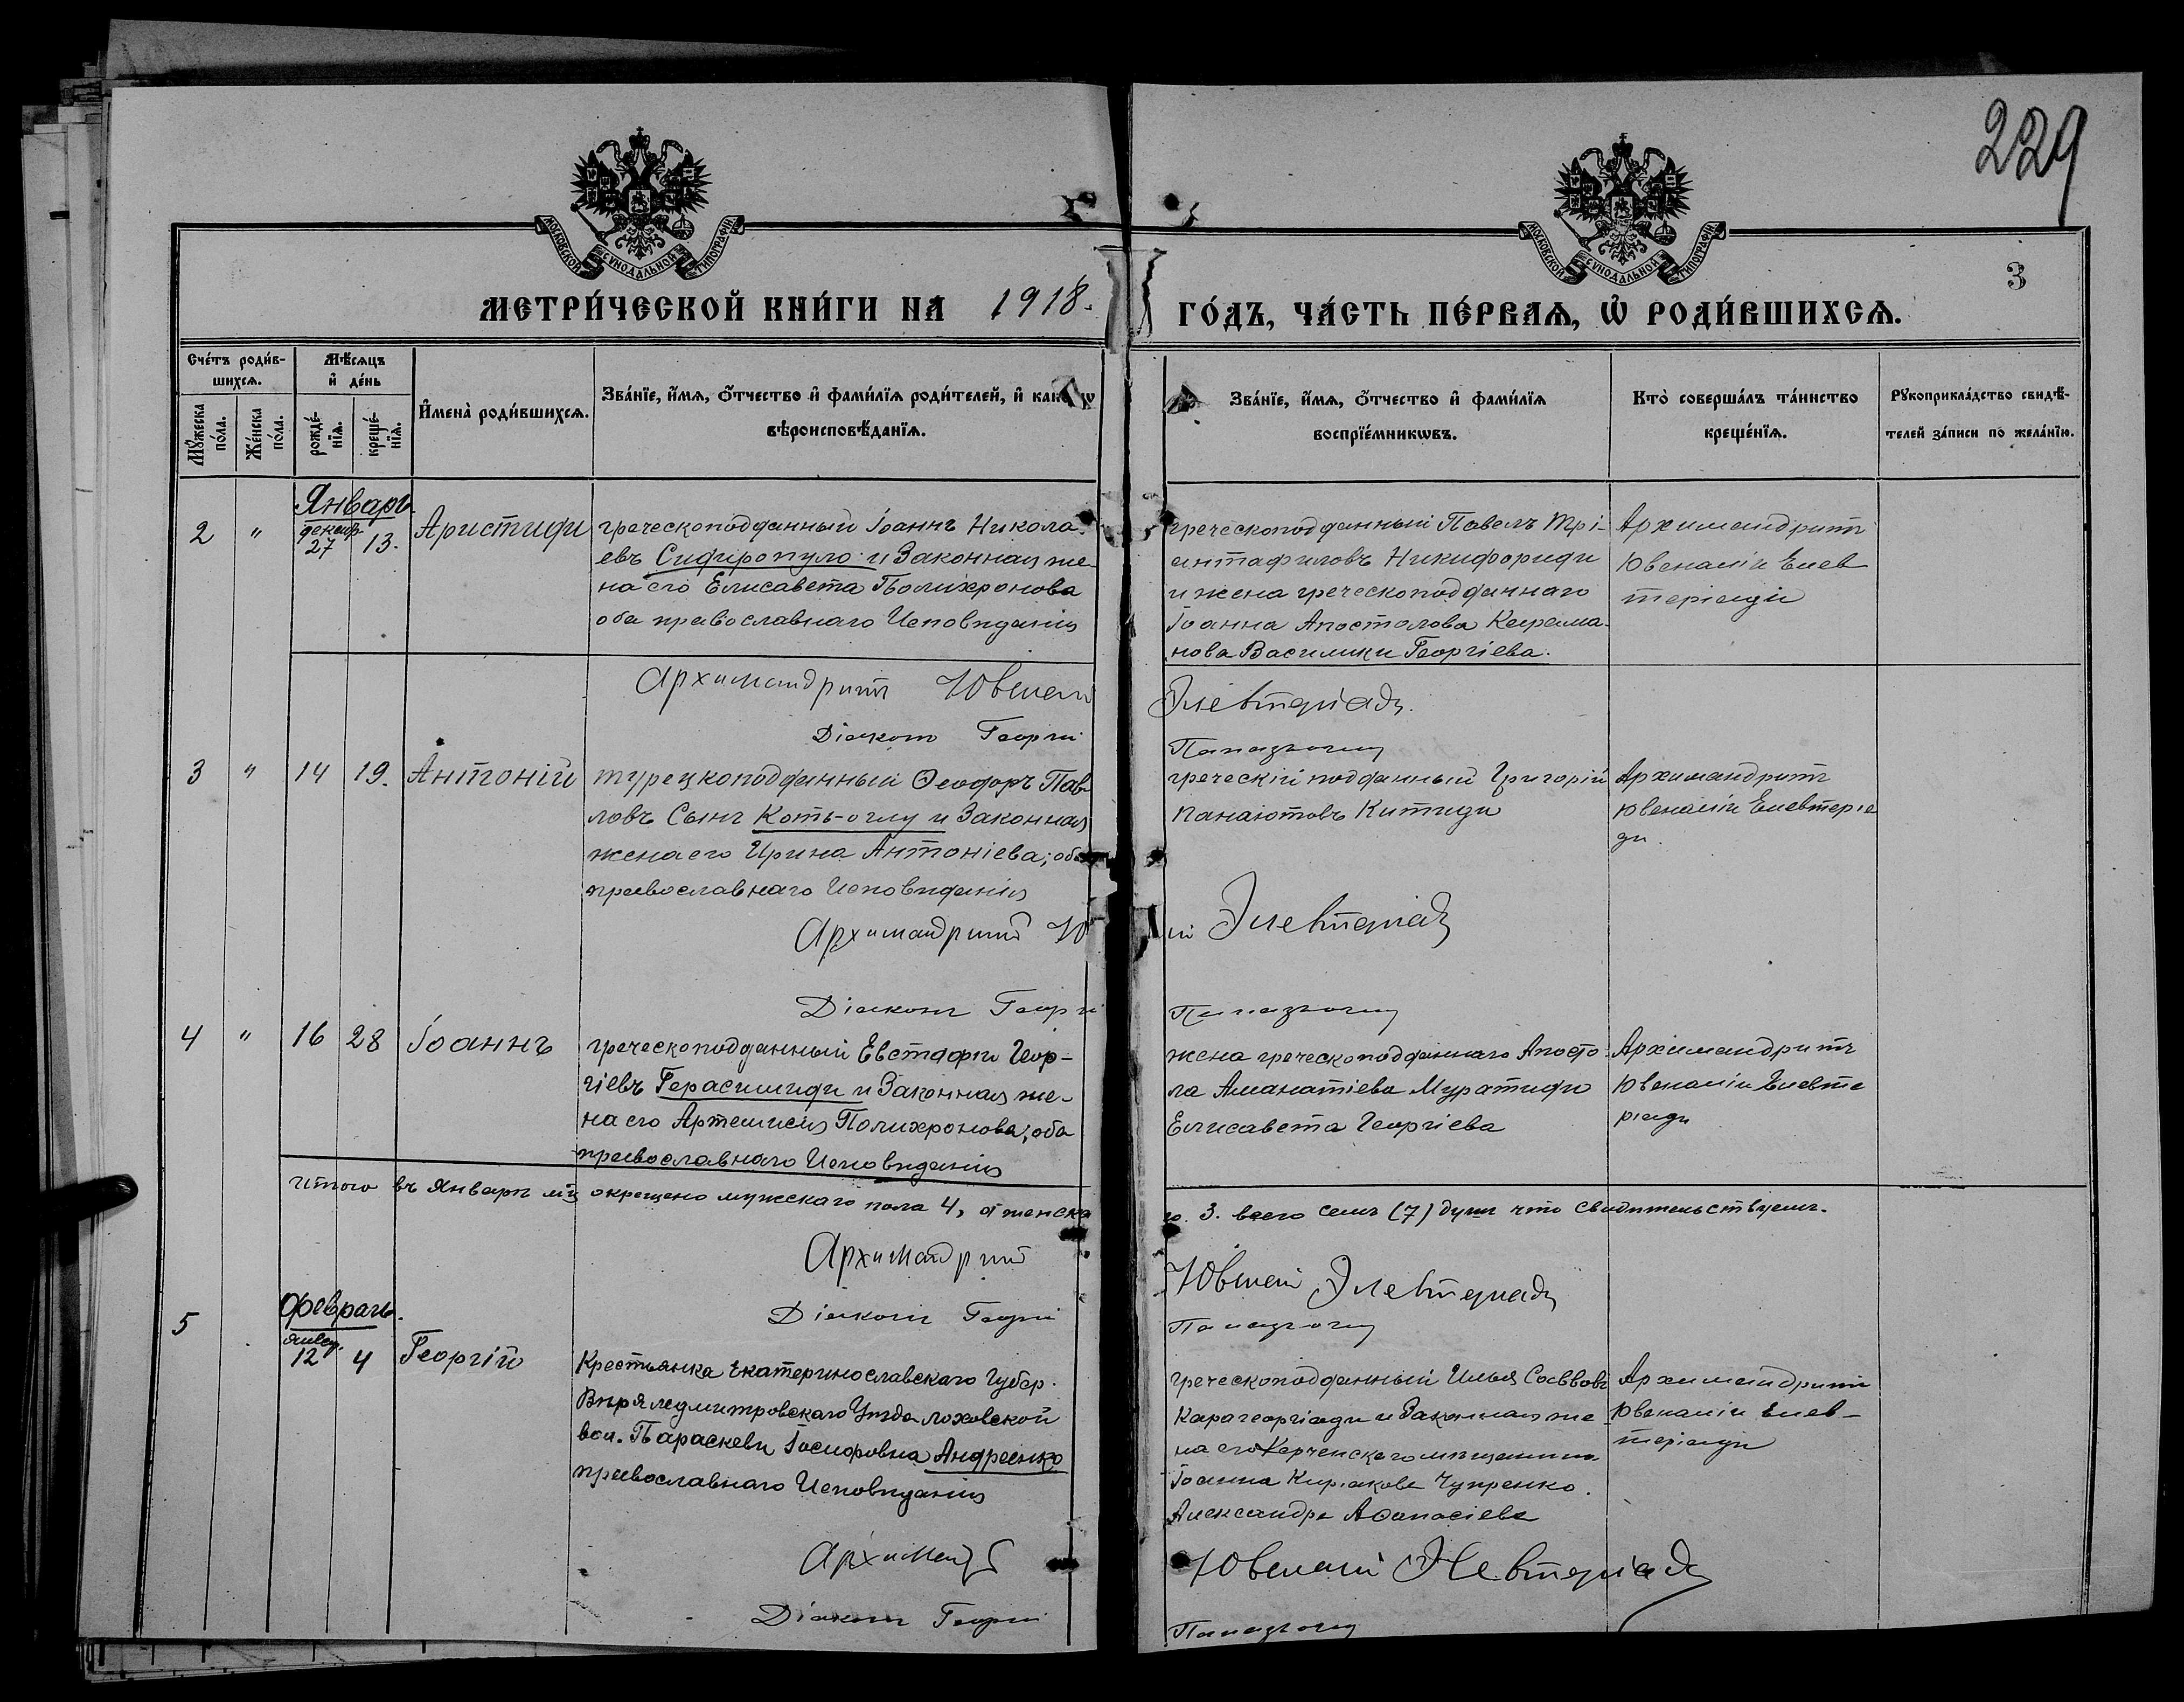 229
3
МОСКОВСКОЙ СѴНОДАЛЬНОЙ ТИПОГРАФІИ
МОСКОВСКОЙ СѴНОДАЛЬНОЙ ТИПОГРАФІИ
МЕТРИ́ЧЕСКОЙ КНИ́ГИ НА 1918.
ГО́ДЪ, ЧА́СТЬ ПЕ́РВАѦ, Ѽ РОДИ́ВШИХСѦ.
Сче́тъ роди́в-
шихсѧ.
Мꙋ́жеска по́ла.
Же́нска по́ла.
Мѣ́сѧцъ
и҆ де́нь
рожде́-
нїѧ.
креще́-
нїѧ.
И҆мена̀ роди́вшихсѧ.
Зва́нїе, и҆́мѧ, ѻ҆́тчество и҆ фами́лїѧ роди́телей, и҆ как
вѣроисповѣ́данїѧ.
Зва́нїе, и҆́мѧ, ѻ҆́тчество и҆ фами́лїѧ
воспрїе́мникѡвъ.
Кто̀ соверша́лъ та́инство
креще́нїѧ.
Рꙋкоприкла́дство свидѣ́-
телей за́писи по жела́нїю.
Январь
2 " декабр. 27 13. Аристиди
греческоподданный Іоаннъ Никола-
евъ Сидиропуло и Законная же
на его Елисавета Полихронова
оба православнаго Исповѣданія
греческоподданный Павелъ Трі-
антафиловъ Никифориди
и жена греческоподданнаго
Іоанна Апостолова Карама-
нова Василики Георгіева.
Архимандритъ
Ювеналій Елев
теріади
Архимандритъ Ювенали
Элевтеріади.
Діаконъ Георгій
3 " 14 19. Антоній
турецкоподданный Ѳеодоръ Пав-
ловъ Сынъ Коть-оглу и Законная
жена его Ирина Антоніева; оба
православнаго Исповѣданія
греческій подданный Григорій
Панаіотовъ Китиди
Архимандритъ
Ювеналій Елевтеріа
ди.
Архимандритъ Ю
ій Элевтеріади
Діаконъ Георгі
4 " 16 28 Іоаннъ
греческоподданный Евстафи Геор-
гіевъ Герасимиди и Законная же-
на его Артемисія Полихронова; оба
православнаго Исповѣданія
жена греческоподданнаго Апосто-
ла Аманатіева Муратиди
Елисавета Георгіева
Архимандритъ
Ювеналій Елевте
ріади
Итого въ Январѣ мцѣ окрещено мужскаго пола 4, а женска
го. 3. всего семь (7) душъ что свидѣтельствуемъ.
Архимандритъ
Ювеналій Элевтеріади
Діаконъ Георгій
Февраль.
5 январ. 12 4 Георгій
Крестьянка Екатеринославскаго Губер.
Уѣзда лоховской
вол. Параскеви Іосифовна Андреенко
православнаго Исповѣданія
греческоподданный Илья Саввовъ
Карагеоргіади и Законная же
на его Керченскаго мѣщанина
Іоанна Киріакова Чупренко.
Александра Аѳанасіева
Архимандритъ
Ювеналій Елев-
теріади
Архиманд
Ювеналій Элевтеріади
Діаконъ Георгій